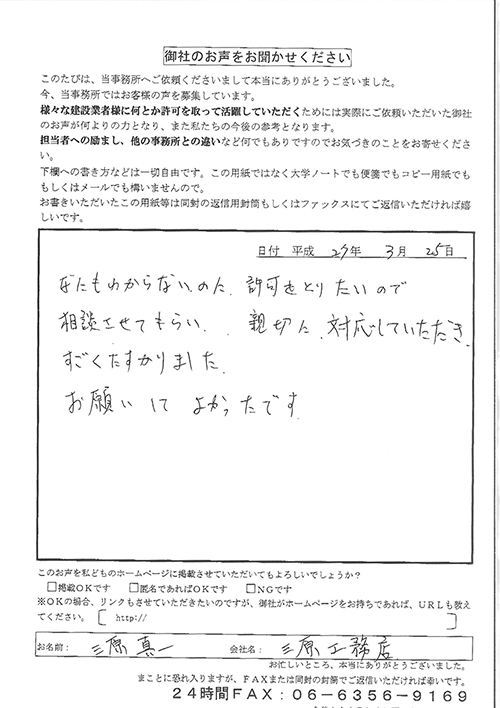 御社のお声をお聞かせください
このたびは、当事務所へご依頼くださいまして本当にありがとうございました。
今、当事務所ではお客様の声を募集しています。
様々な建設業者様に何とか許可を取って活躍していただくためには実際にご依頼いただいた御社
のお声が何よりの力となり、また私たちの今後の参考となります。
担当者への励まし、他の事務所との違いなど何でもありですのでお気づきのことをお寄せくださ
い。
下欄への書き方などは一切自由です。この用紙ではなく大学ノートでも便箋でもコピー用紙でも
もしくはメールでも構いませんので。
お書きいただいたこの用紙等は同封の返信用封筒もしくはファックスにてご返信いただければ嬉
しいです。
日付 平成 27年 3月 25日
なにもわからないのに、許可をとりたいので
相談させてもらい、親切に、対応していただき、
すごくたすかりました。
お願いして よかったです
このお声を私どものホームページに掲載させていただいてもよろしいでしょうか?
□掲載OKです □匿名であればOKです □NGです
※OKの場合、リンクもさせていただきたいのですが、御社がホームページをお持ちであれば、URLも教え
てください。[ http:// ]
お名前: 三原 真一 会社名: 三原工務店
お忙しいところ、本当にありがとうございました。
まことに恐れ入りますが、FAXまたは同封の封筒でご返信いただければ幸いです。
24時間FAX:06-6356-9169